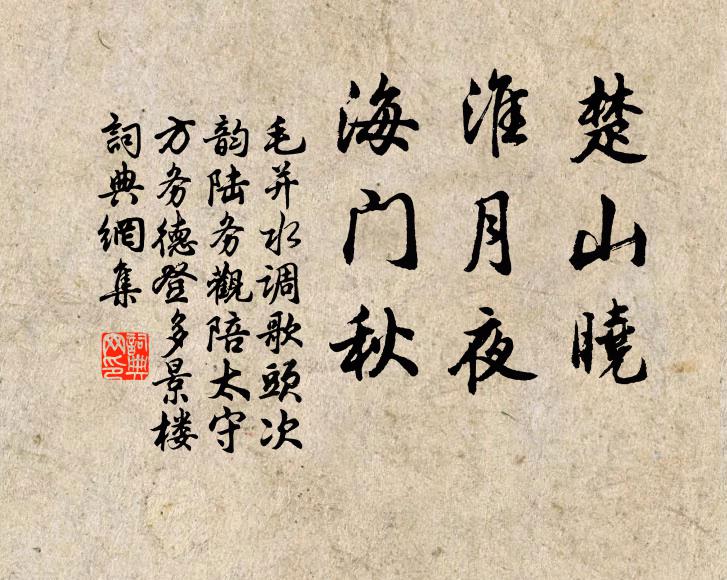 楚山曉
淮月夜
海门秋
毛并水调歌頭次
韵陆务觀陪太守
方务德登多景楼
詞典網集
詞典網印